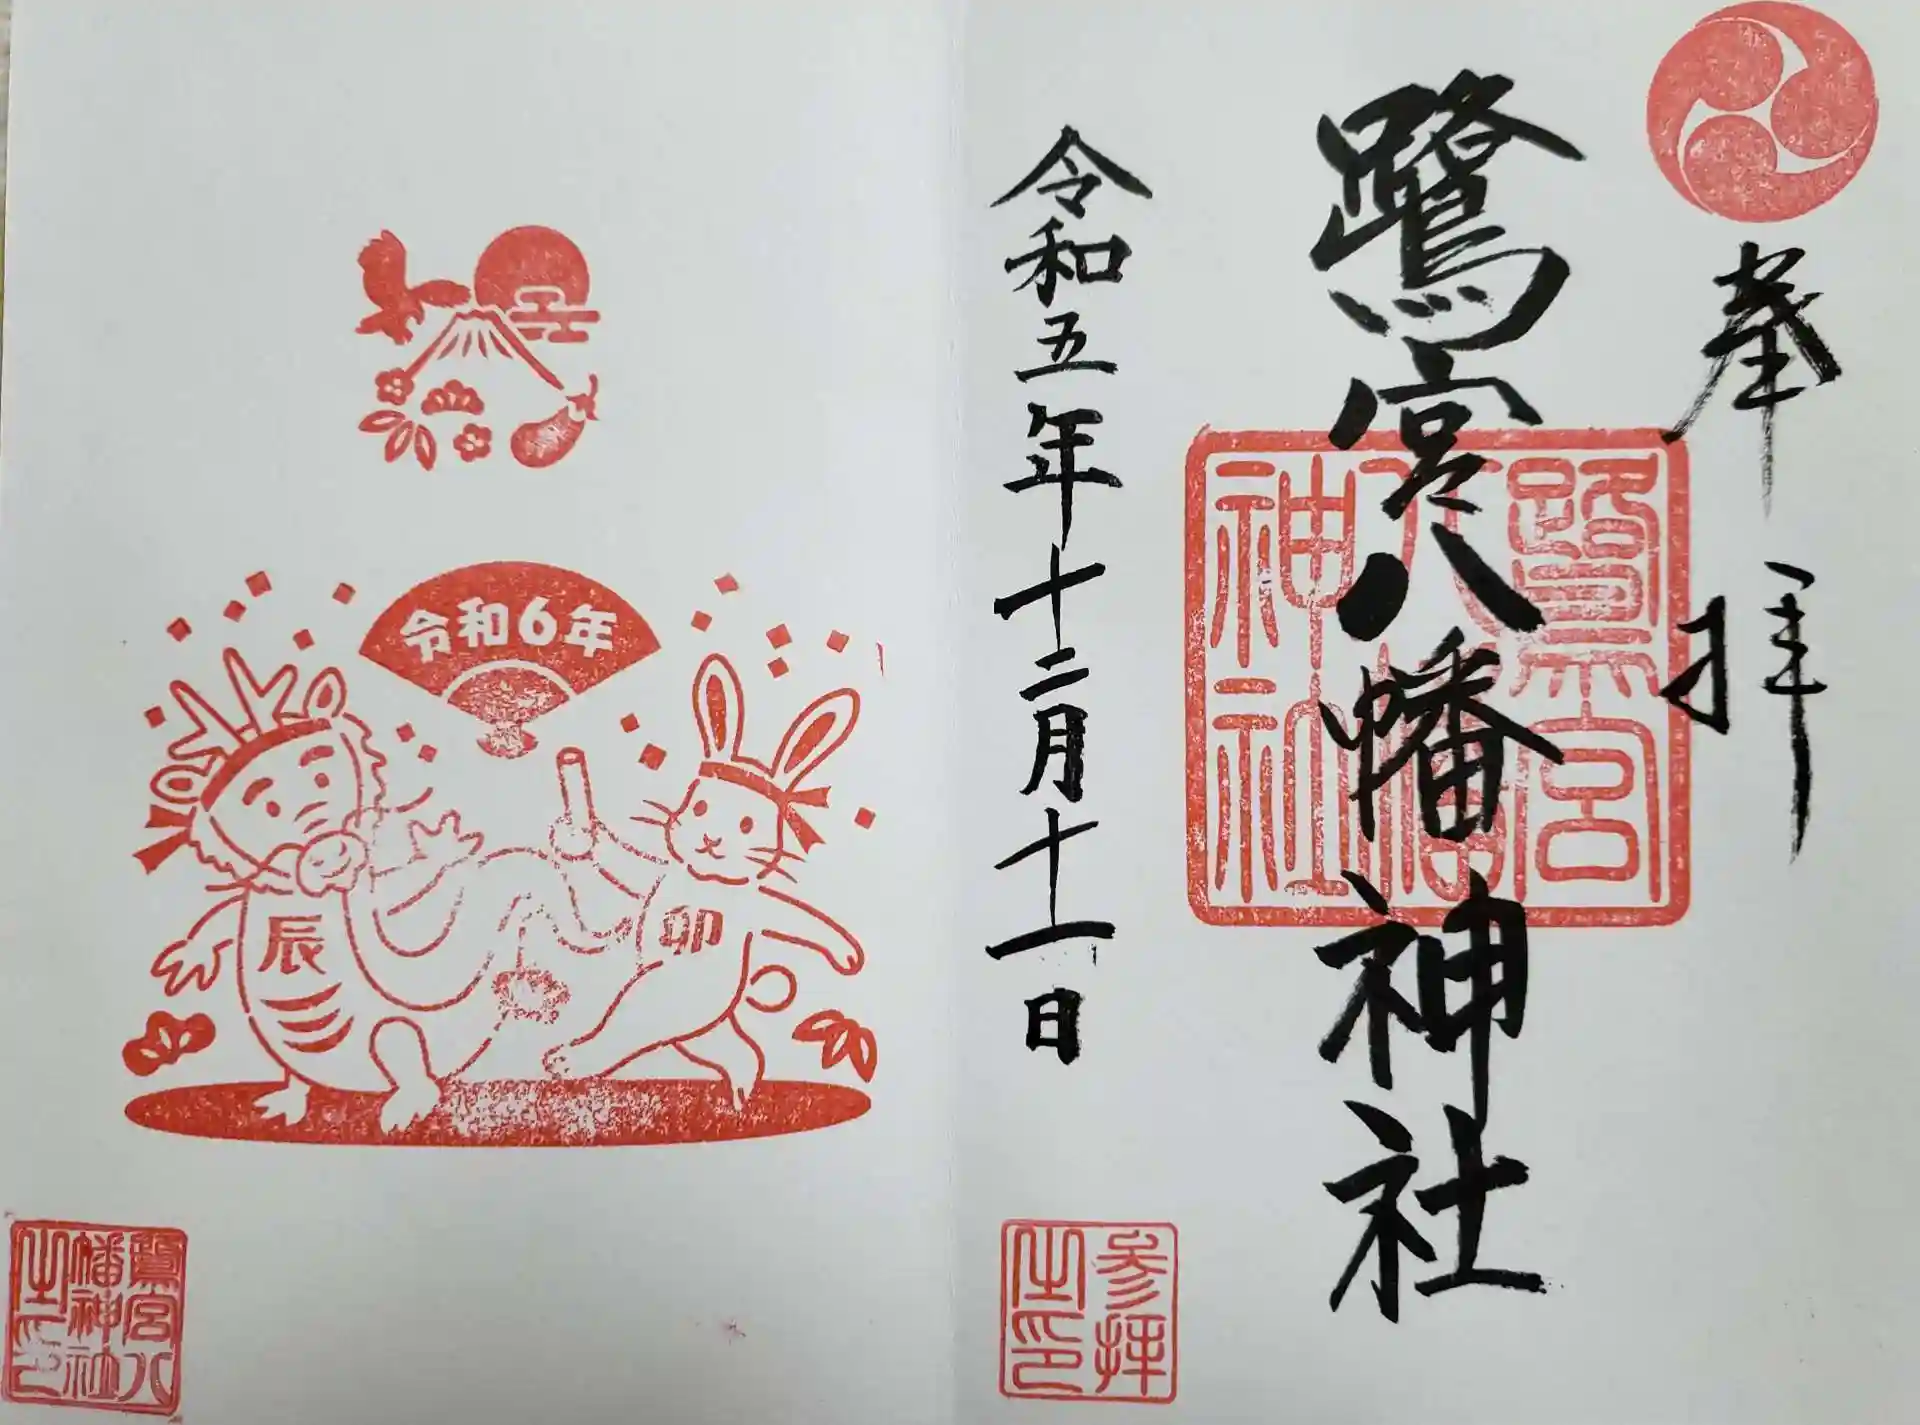 奉拝
鷺宮八幡神社
鷺宮
八幡
神社
令和五年十二月十一日
参拝
之印
令和6年
卯
辰
鷺宮八
幡神社
之印